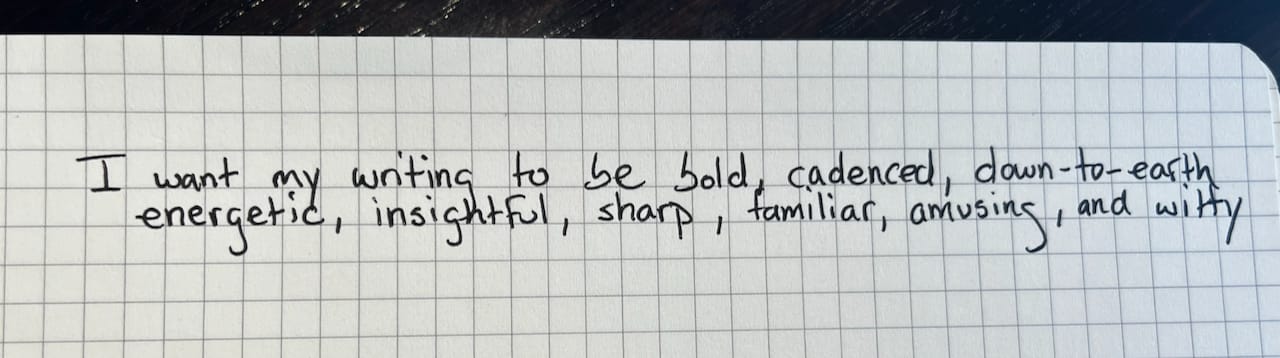 I want my writing to be bold, cadenced, down-to-earth
energetic, insightful, sharp, familiar, amusing, and witty